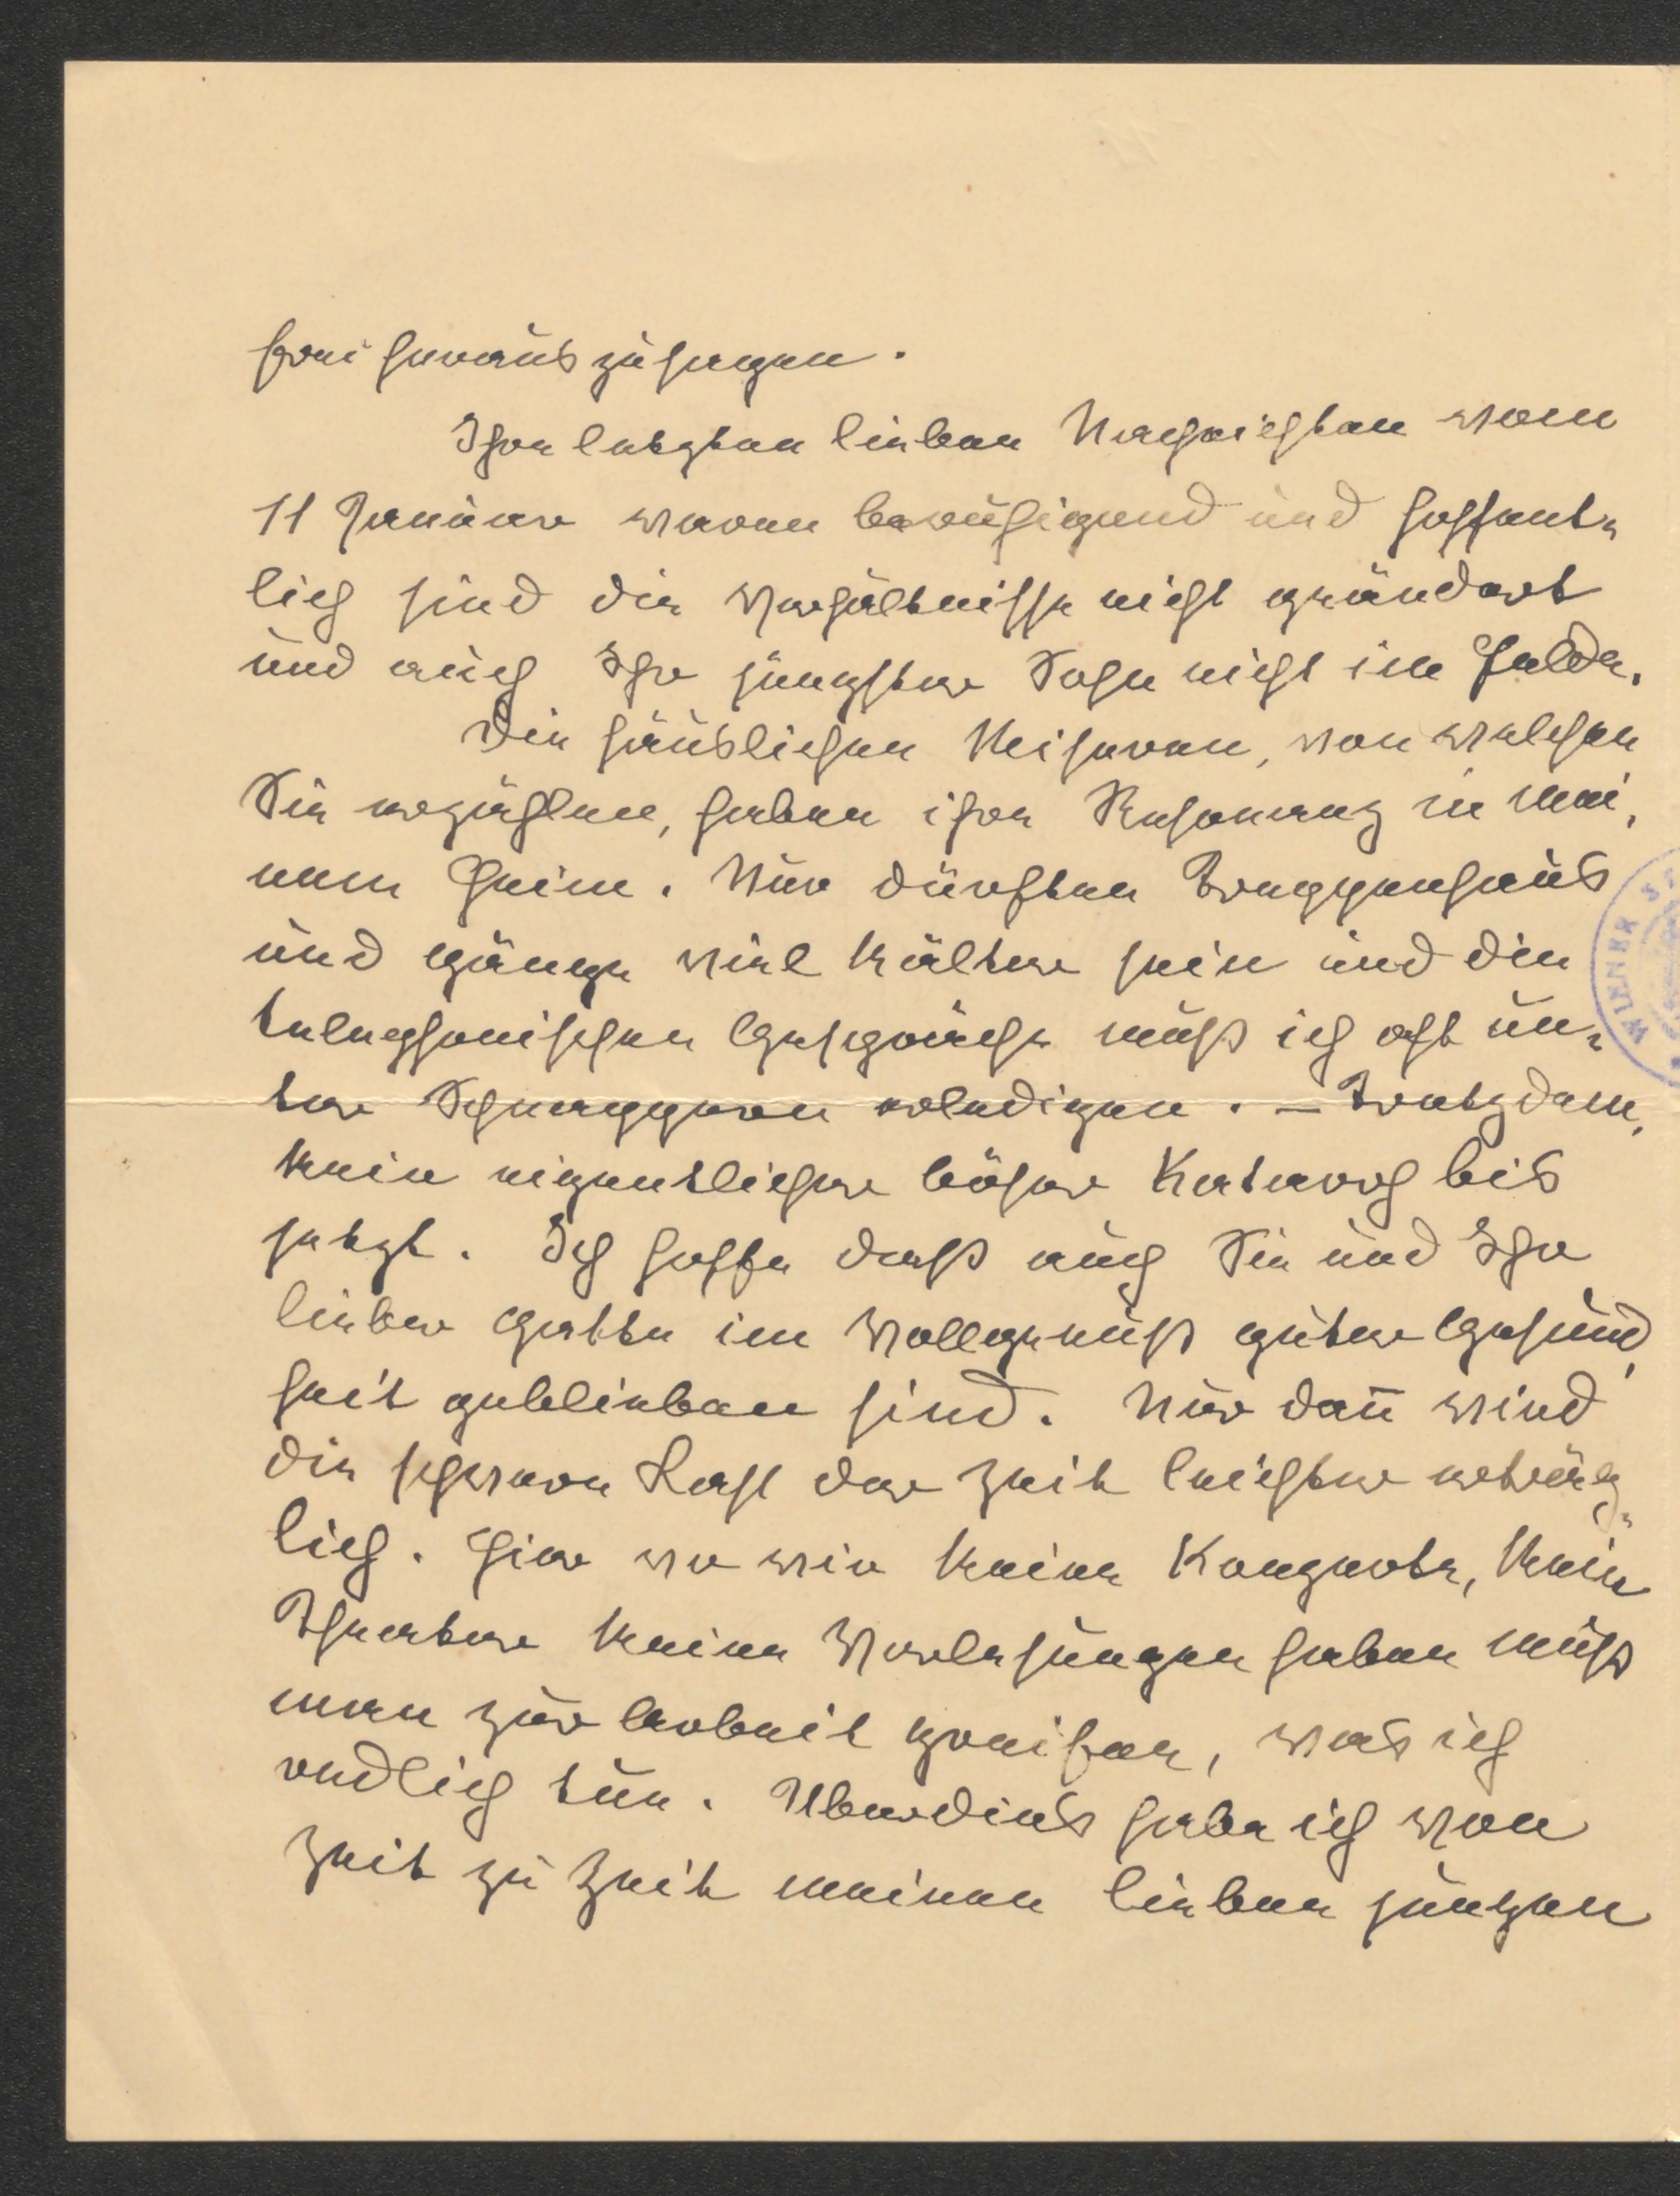 frei herauszusagen.
Ihre letzten lieben Nachrichten vom
11 Januar waren beruhigend und hoffent-
lich sind die Verhältnisse nicht geändert
und auch Ihr jüngster Sohn nicht im Felde.
Die häuslichen Miseren, von welchen
Sie erzählen, haben ihre Resonanz in mei-
nem Heim. Nur dürften Treppenhaus
und Gänge viel kälter sein und die
telephonischen Gespräche muß ich oft un-
ter Schnappern erledigen. – Trotzdem,
kein eigentlicher böser Katarrh bis
jetzt. Ich hoffe daß auch Sie und Ihr
lieber Gatte im Vollgenuß guter Gesund-
heit geblieben sind. Nur dan̄ wird
die schwere Last der Zeit leichter erträg-
lich. Hier wo wir keine Konzerte, kein
Theater keine Vorlesungen haben muß
man zur Arbeit greifen, was ich
redlich tue. Überdies habe ich von
Zeit zu Zeit meinen lieben jungen
WIENER